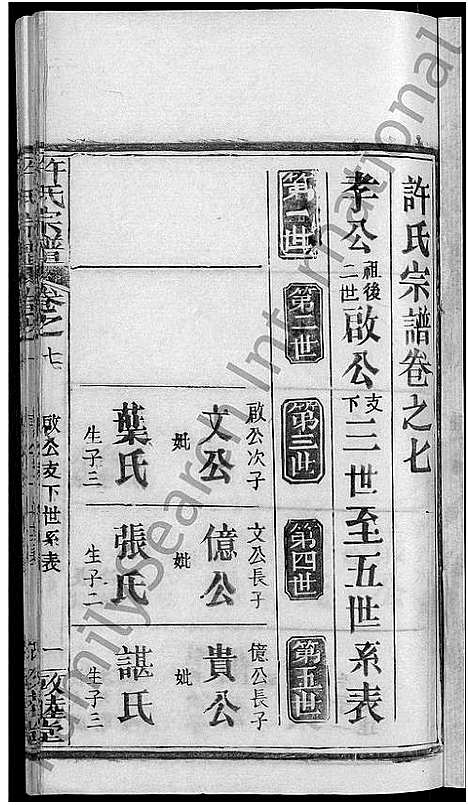 許氏宗譜卷之七
孝公祖後二世啟公支下三世至五世系表
第一世
第二世
第三世
第四世
第五世
啟公次子
文公
妣
葉氏
生子三
文公長子
億公
妣
張氏
生子二
億公長子
貴公
妣
諶氏
生子三
許氏宗譜
卷之七
啟公支下世系表
一
敦陸堂
FamilySearch International